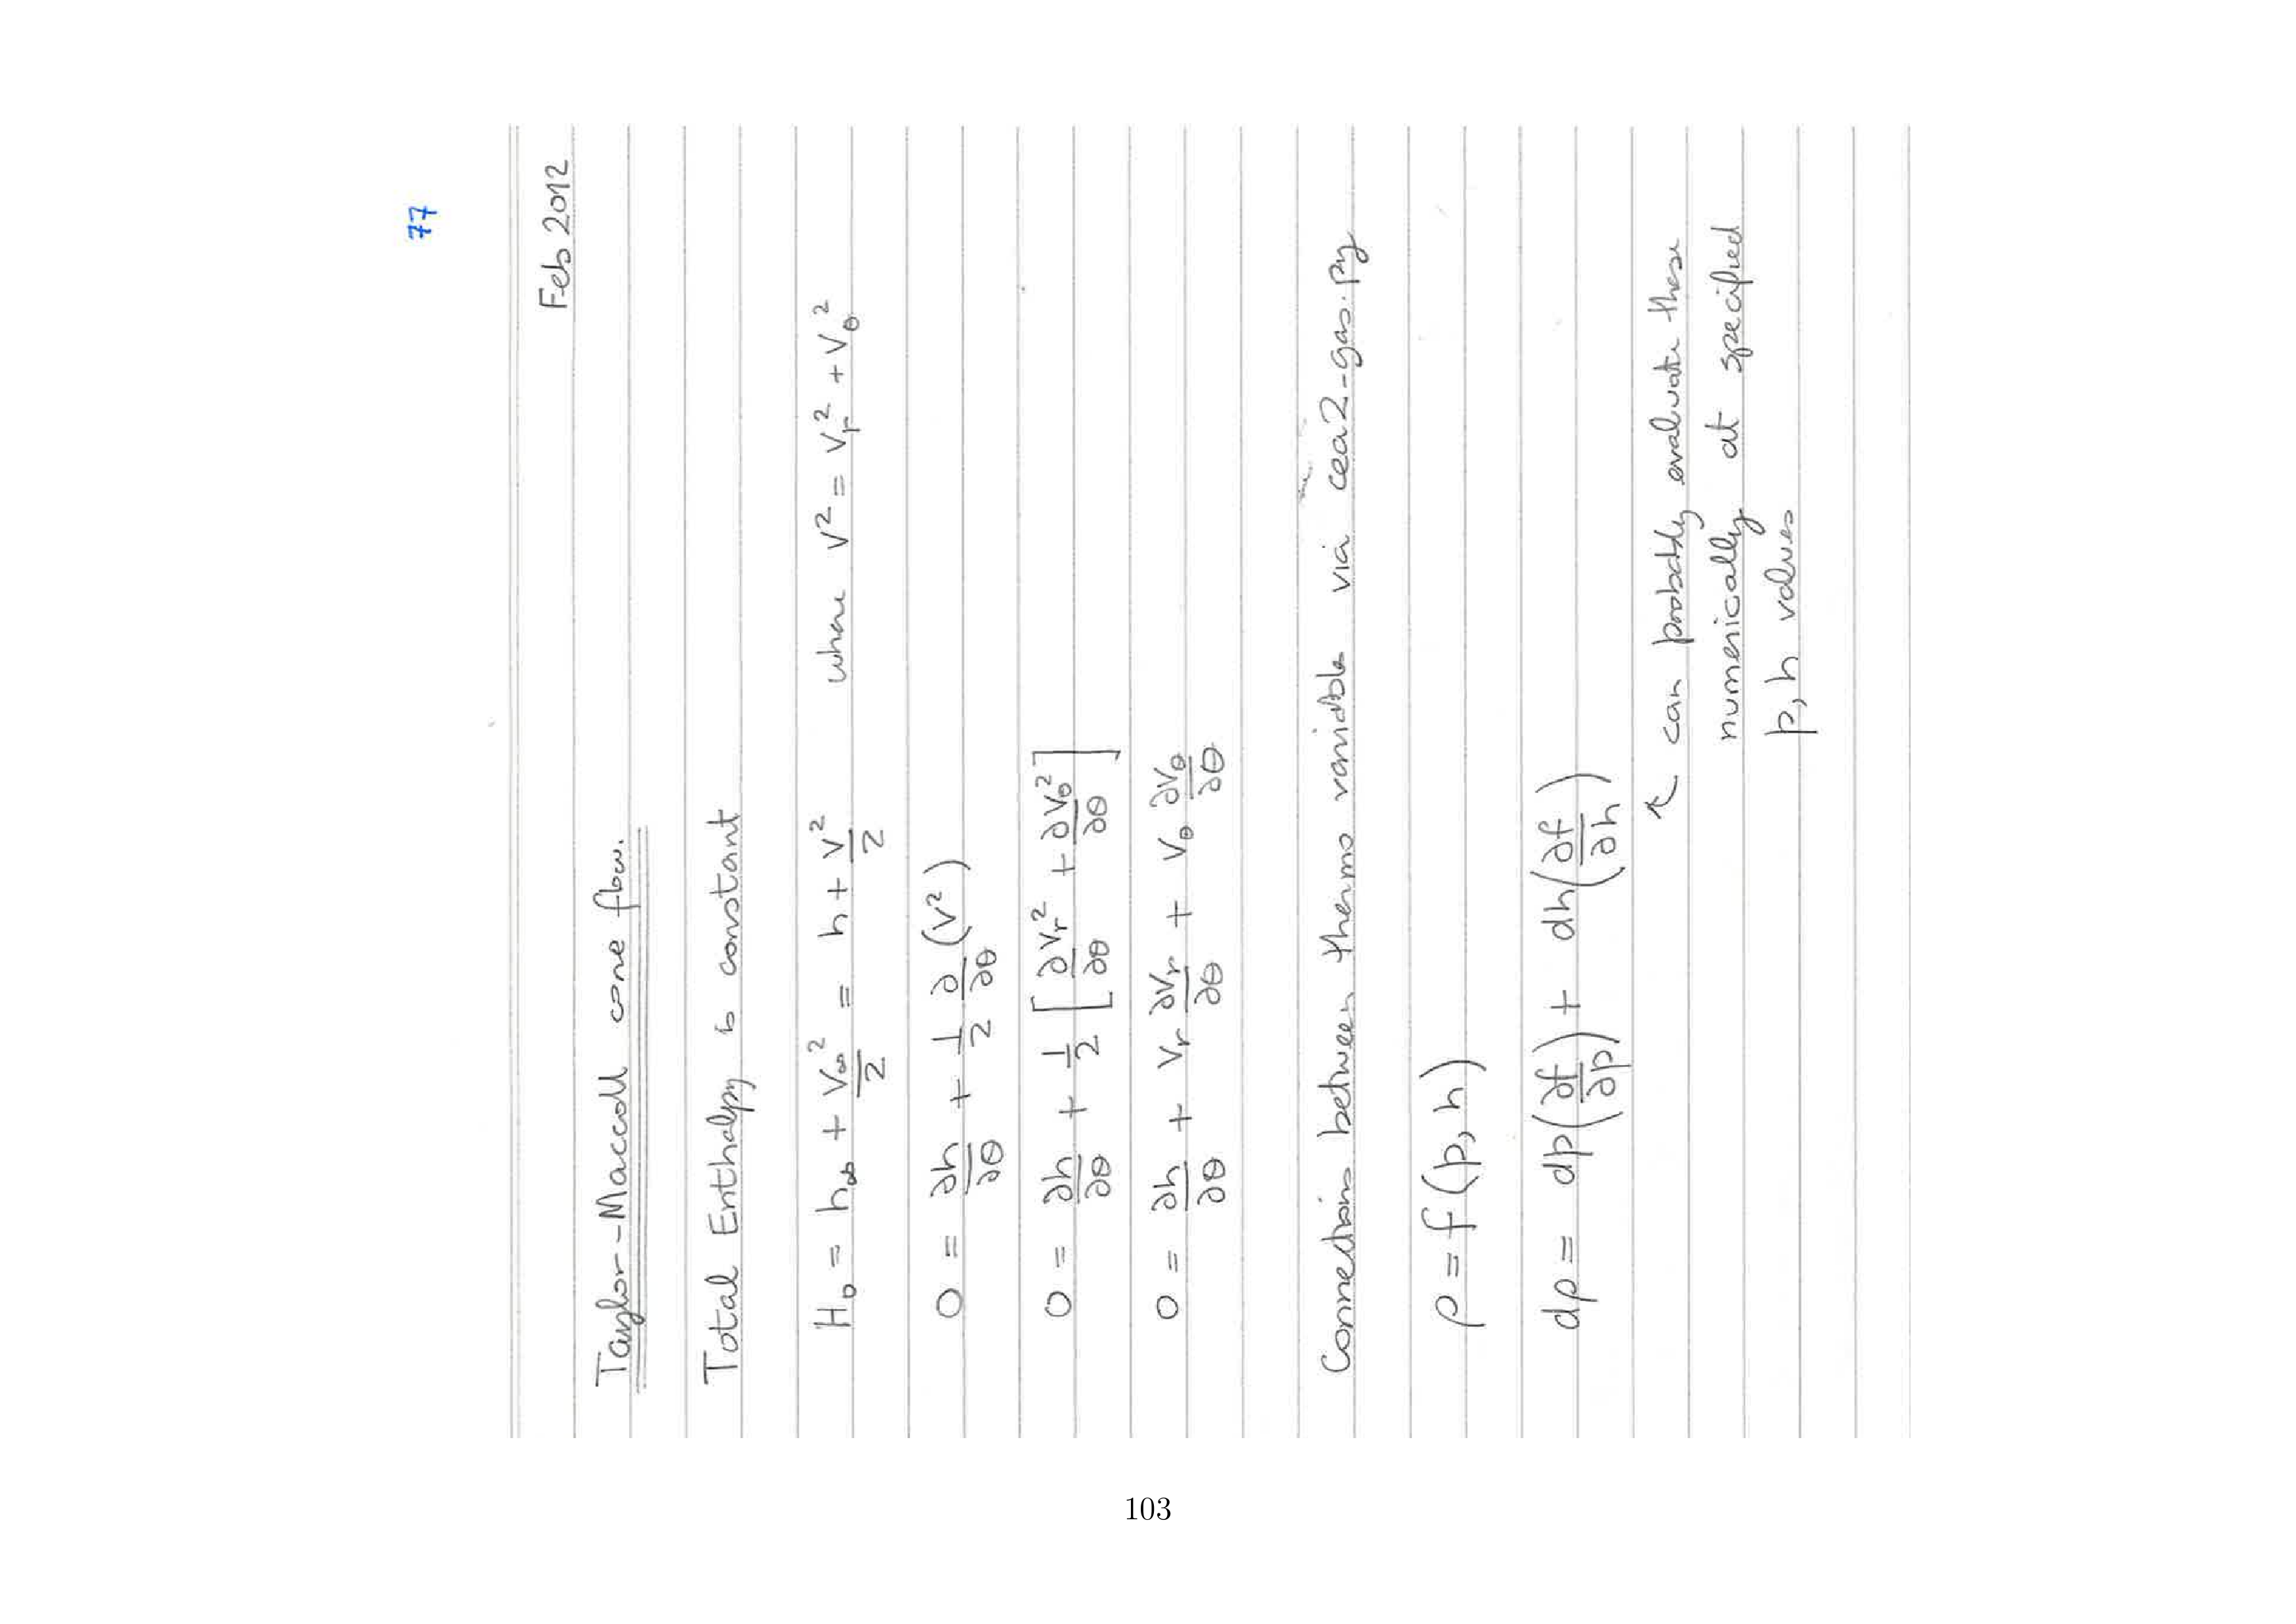 77
Feb 2012
Taylor-Maccoll cone flow.
Total Enthalpy is constant
H₀ = h∞ + V∞²/2 = h + V²/2 where V² = Vr² + Vθ²
0 = ∂h/∂θ + 1/2 ∂/∂θ (V²)
0 = ∂h/∂θ + 1/2 [∂Vr²/∂θ + ∂Vθ²/∂θ]
0 = ∂h/∂θ + Vr ∂Vr/∂θ + Vθ ∂Vθ/∂θ
Connections between thermo variable via cea2-gas.py
ρ = f(p, h)
dρ = dp(∂f/∂p) + dh(∂f/∂h)
↖ can probably evaluate these
numerically at specified
p, h values
103